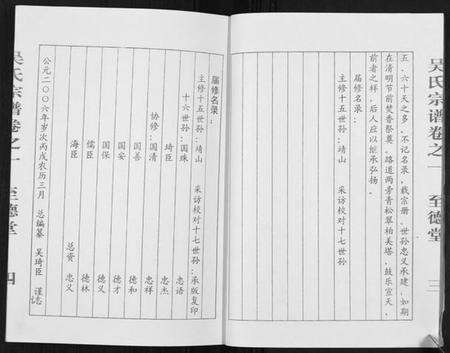 吴氏宗谱卷之一 至德堂 三
五、六十天之多，不记名录，载宗册，世孙忠义承建，如期
在清明节前焚香祭奠，路道两茅青松翠柏美塔，鼓乐宣天，
前者之祥，后人应以继承弘扬。
届修名录：
主修十五世孙：靖山 采访校对十七世孙
届修名录：
主修十五世孙：靖山 采访校对十七世孙：承版复印
十六世孙：国珠 忠语
琦臣 忠杰
协修：国清 忠祥
国善 德和
国安 德才
国保 德义
儒臣 德林
海臣 总资 忠义
公元二〇〇六年岁次丙戊农历三月 总编纂 吴琦臣 谨志
吴氏宗谱卷之一 至德堂 四